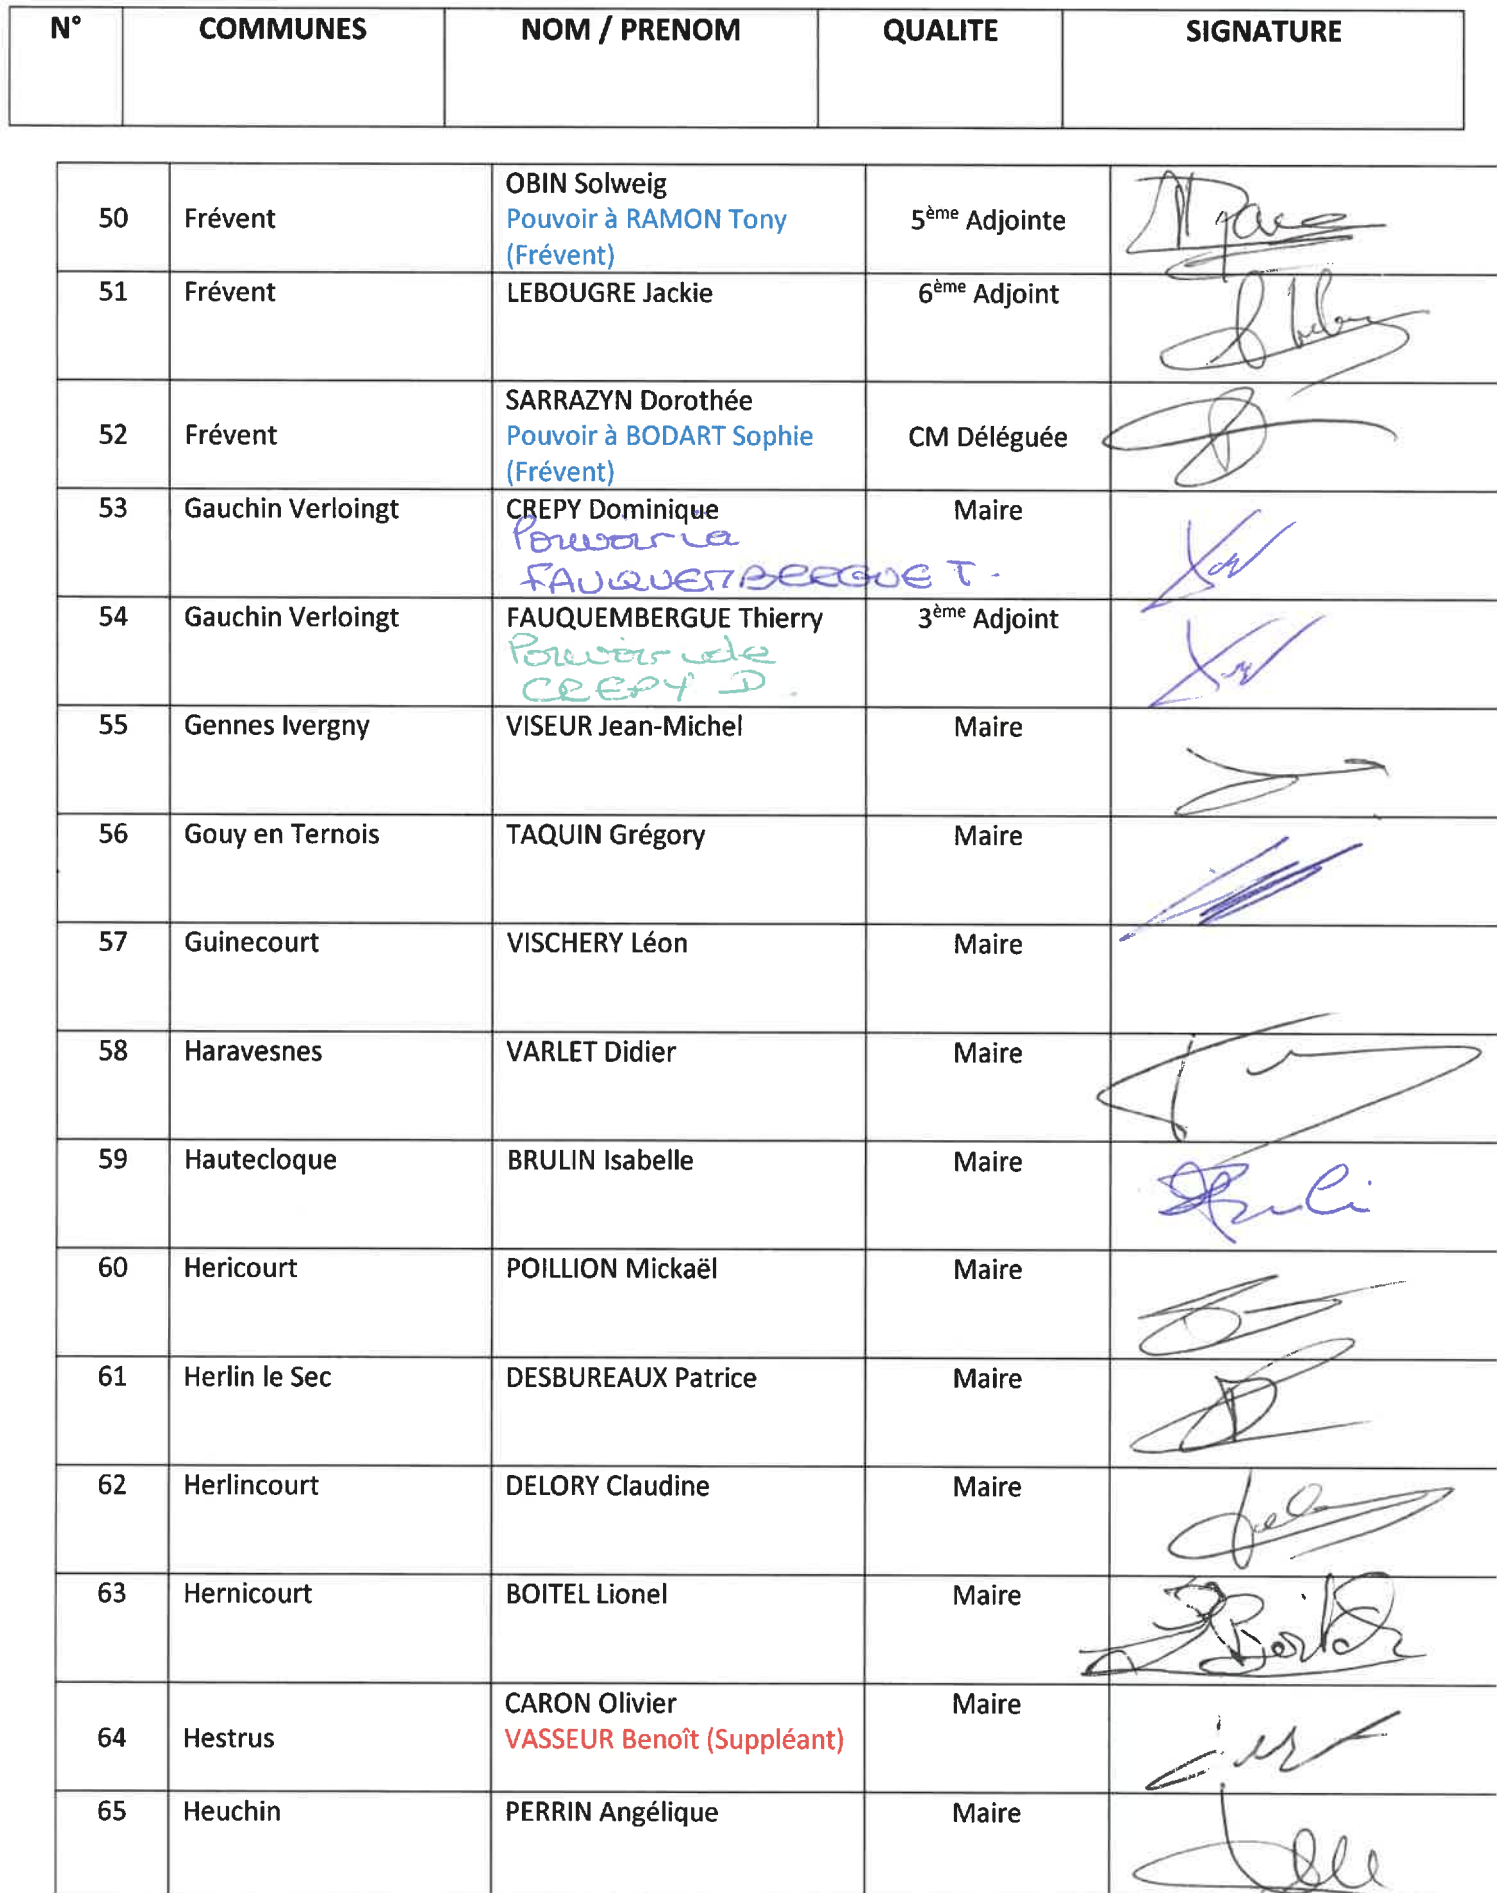 N° COMMUNES NOM / PRENOM QUALITE SIGNATURE
OBIN Solweig
50 Frévent Pouvoir à RAMON Tony 5ème Adjointe
(Frévent)
51 Frévent LEBOUGRE Jackie 6ème Adjoint
SARRAZYN Dorothée
52 Frévent Pouvoir à BODART Sophie CM Déléguée
(Frévent)
53 Gauchin Verloingt CREPY Dominique Maire
Pouvoir à
FAUQUEMBERGUE T.
54 Gauchin Verloingt FAUQUEMBERGUE Thierry 3ème Adjoint
Pouvoir de
CREPY D.
55 Gennes Ivergny VISEUR Jean-Michel Maire
56 Gouy en Ternois TAQUIN Grégory Maire
57 Guinecourt VISCHERY Léon Maire
58 Haravesnes VARLET Didier Maire
59 Hautecloque BRULIN Isabelle Maire
60 Hericourt POILLION Mickaël Maire
61 Herlin le Sec DESBUREAUX Patrice Maire
62 Herlincourt DELORY Claudine Maire
63 Hernicourt BOITEL Lionel Maire
CARON Olivier Maire
64 Hestrus VASSEUR Benoît (Suppléant)
65 Heuchin PERRIN Angélique Maire